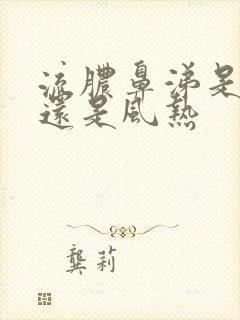 流膿鼻涕是
還是風熱
龔莉